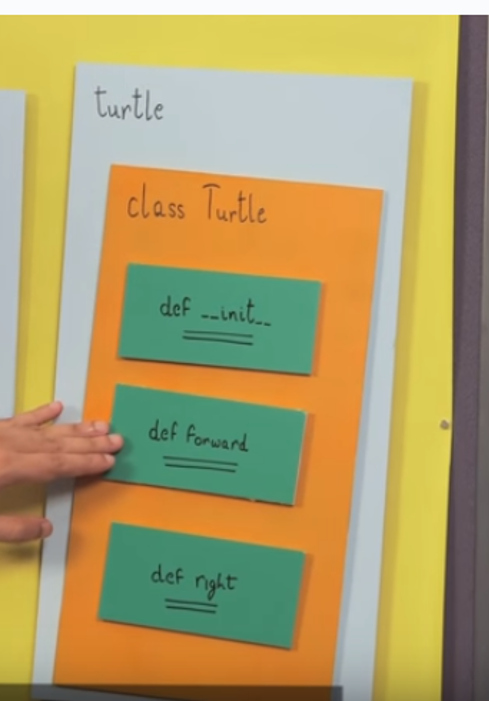 turtle
class Turtle
def __init__
def forward
def right